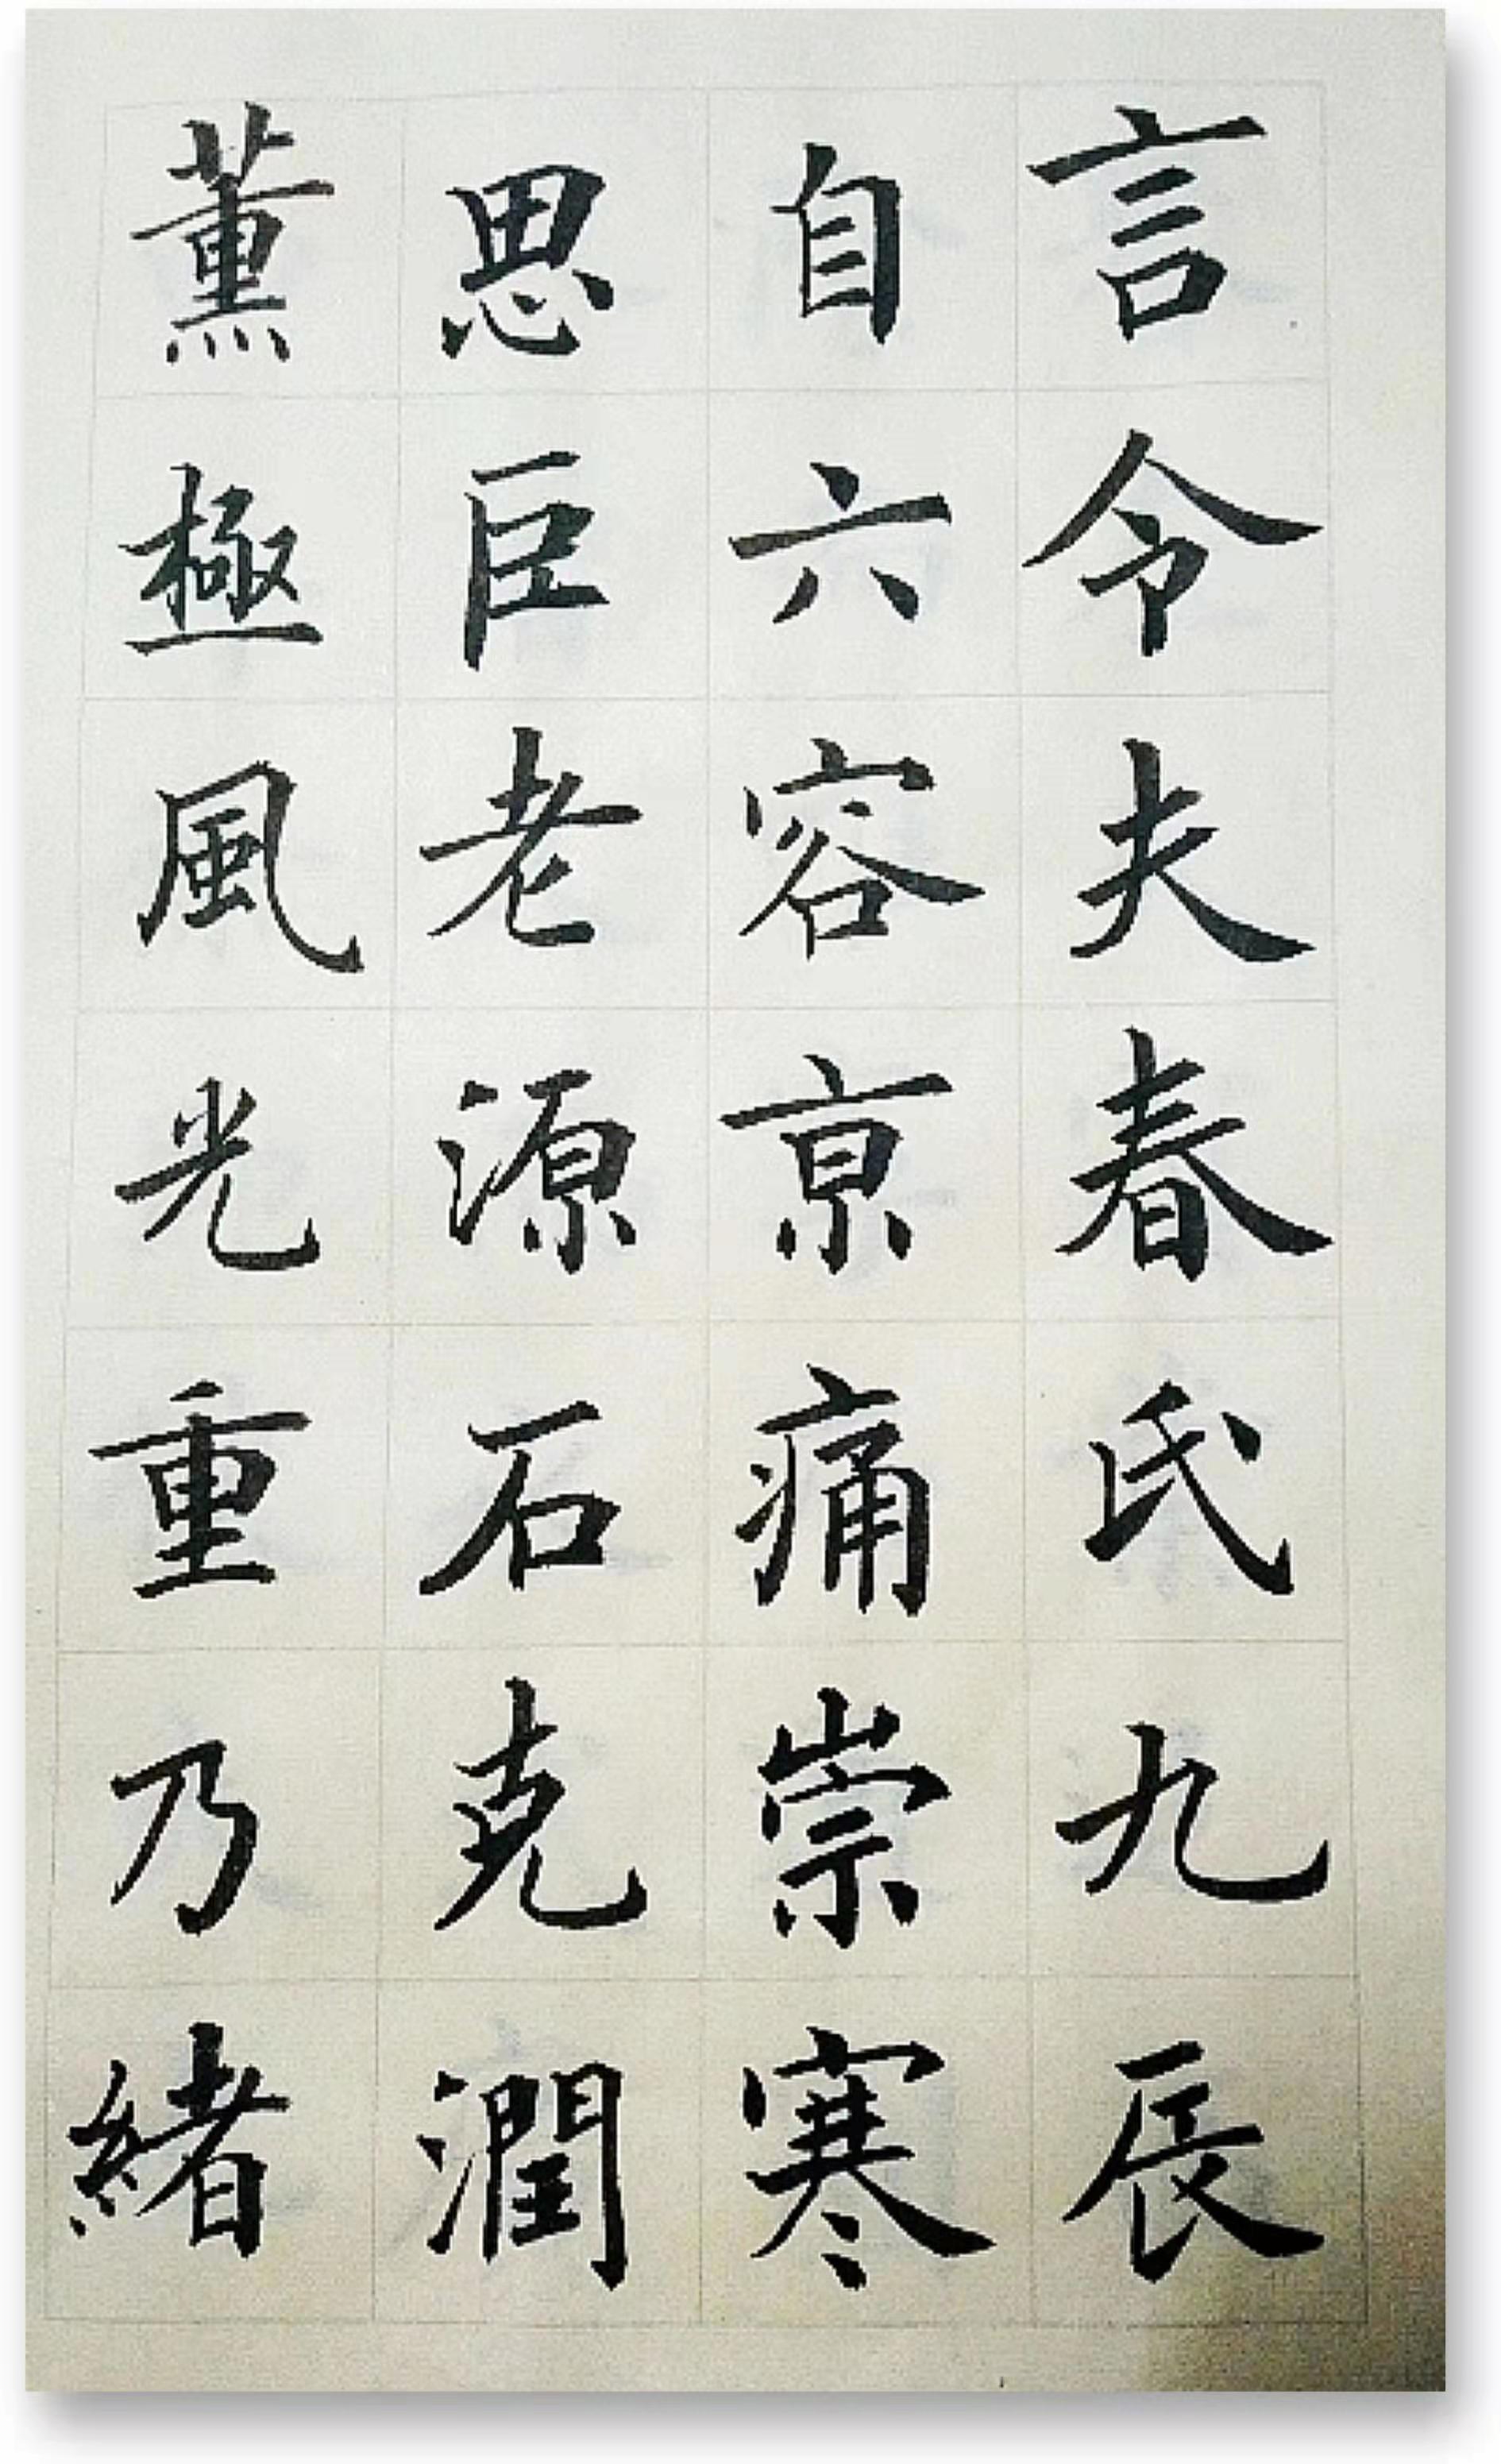 言令夫春氏九辰
自六容京痛崇寒
思臣老源石克潤
薫極風光重乃緒